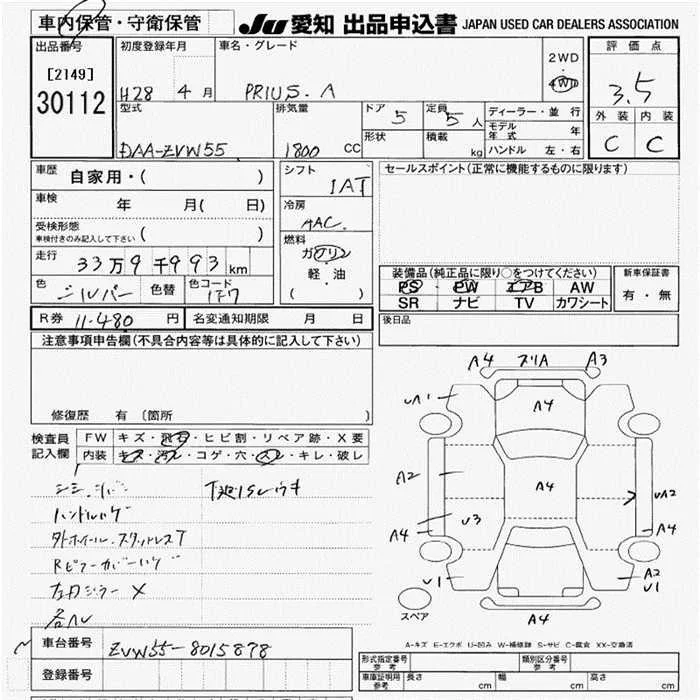 車内保管・守衛保管
JU 愛知 出品申込書 JAPAN USED CAR DEALERS ASSOCIATION
出品番号
[2149]
30112
初度登録年月
H28 4 月
車名・グレード
PRIUS. A
2WD
・
4WD
評価点
3.5
外装 内装
C C
型式
DAA-ZVW55
排気量
1800 CC
ドア 5
定員 5 人
形状
積載 kg
ディーラー・並行
モデル年式 年
ハンドル 左・右
車歴 自家用・( )
車検 年 月( 日)
受検形態
車検付きのみ記入して下さい ( )
走行 33万9千993 km
色 シルバー 色替 色コード 1F7
シフト
IAT
冷房
AAC.
燃料
ガソリン
軽・油
( )
セールスポイント(正常に機能するものに限ります)
装備品(純正品に限り○をつけてください)
PS PW エアB AW
SR ナビ TV カワシート
新車保証書
有・無
R券 11.480 円 名変通知期限 月 日
後日品
注意事項申告欄(不具合内容等は具体的に記入して下さい)
修復歴 有 (箇所 )
検査員
記入欄
FW キズ・飛石・ヒビ割・リペア跡・X要
内装 キズ・汚レ・コゲ・穴・スレ・キレ・破レ
ハンドルハゲ
外ホイール.スタッドレスT
Rピラーカバーハゲ
左右ミラー X
各ヘレ
A4 スリA A3
UA1
A4
A2
A4
UA2
U3
A4
A4
U1
A2
U1
A4
スペア
A-キズ E-エクボ U-凹み W-補修跡 S-サビ C-腐食 XX-交換済
車台番号 ZVW55-8015878
登録番号
形式指定番号
参考
類別区分番号
参考
車庫証明用
参考
長さ cm 幅 cm 高さ cm